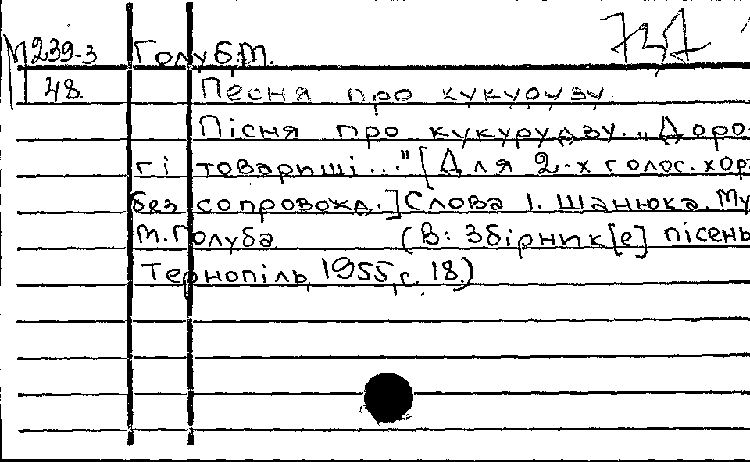 М239-3 Голуб.М.
48. Песня про кукурузу.
Пісня про кукурудзу. „Доро-
гі товариші..." [Для 2-х голос. хор
без сопровожд.] Слова І. Шанюка. Му
М. Голуба (В: Збірник[е] пісень
Тернопіль, 1955, с. 18.)